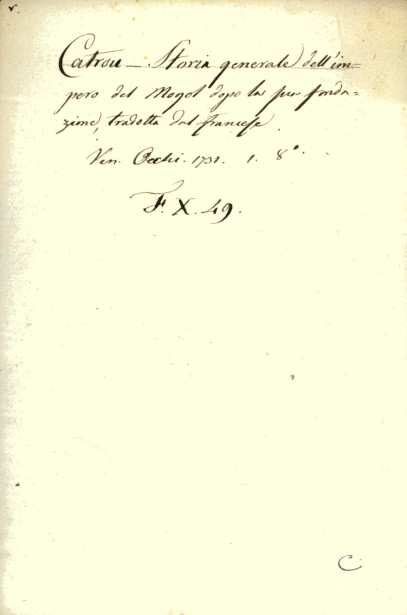 v.
Catrou – Storia generale dell'im=
pero del Mogol dopo la sua fonda=
zione, tradotta dal francese.
Ven. Occhi. 1731. 1. 8°.
F. X. 49.
C